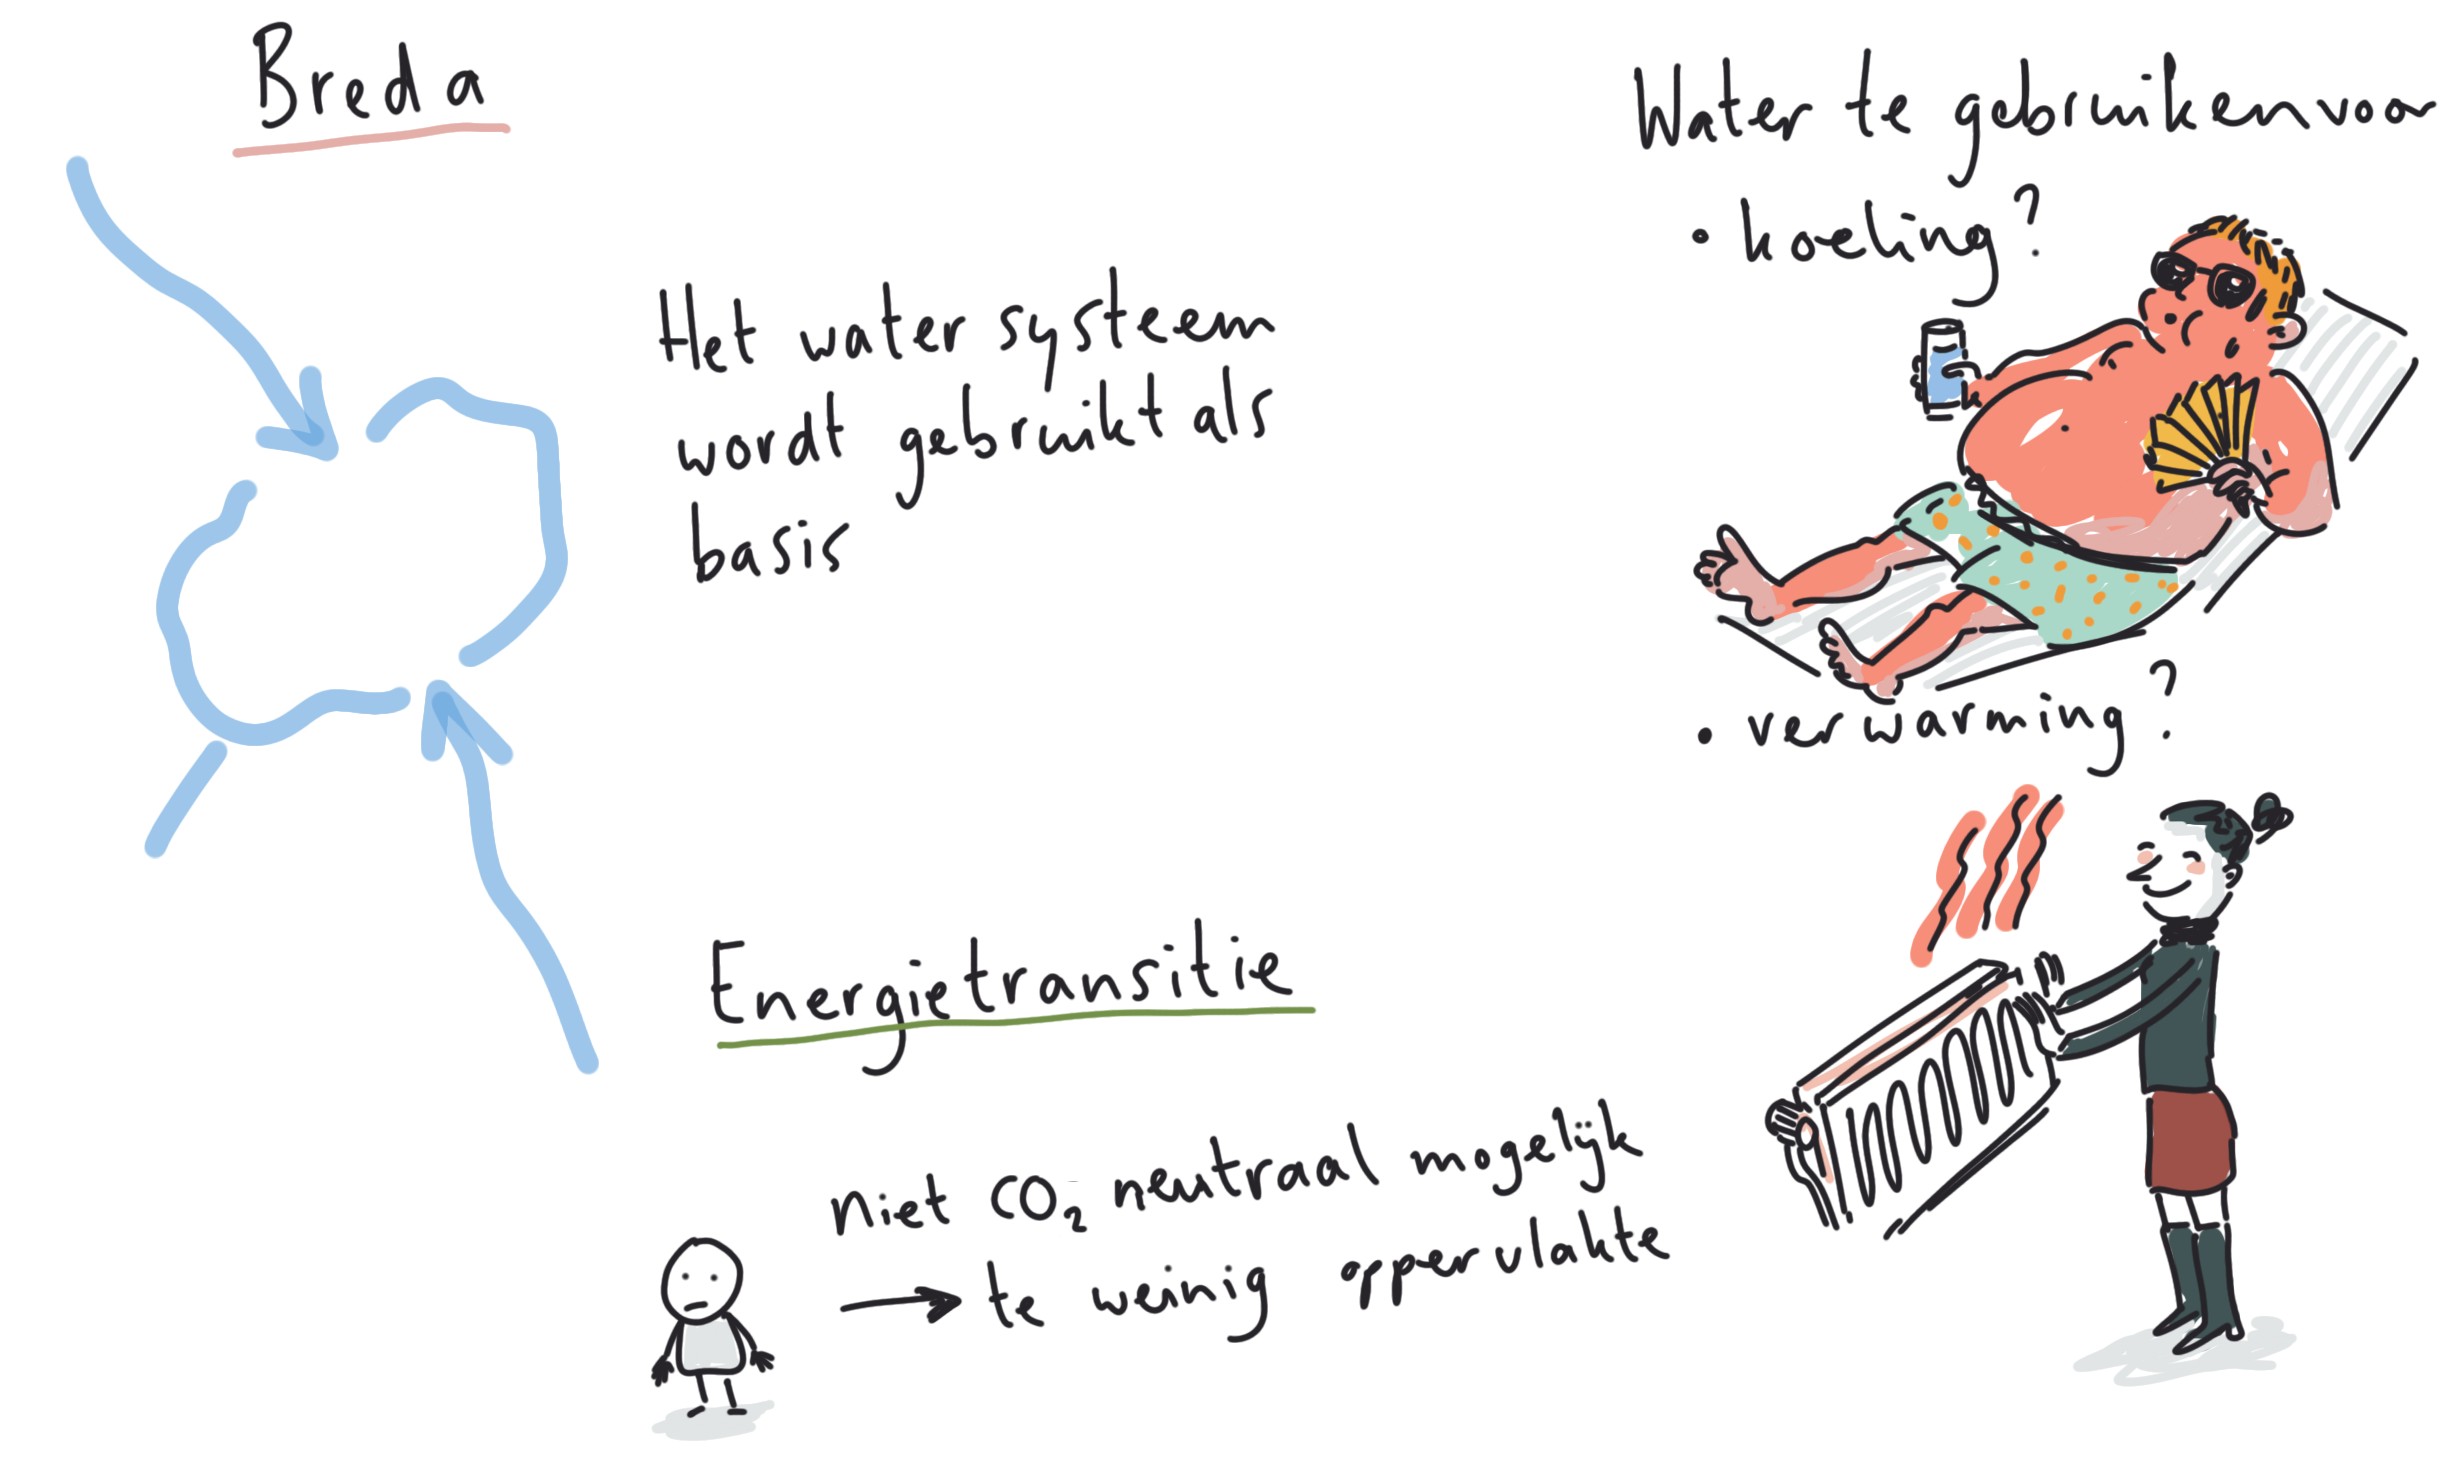 Breda
Het water systeem
wordt gebruikt als
basis
Water te gebruiken voo
• koeling?
• verwarming?
Energietransitie
niet CO₂ neutraal mogelijk
→ te weinig oppervlakte